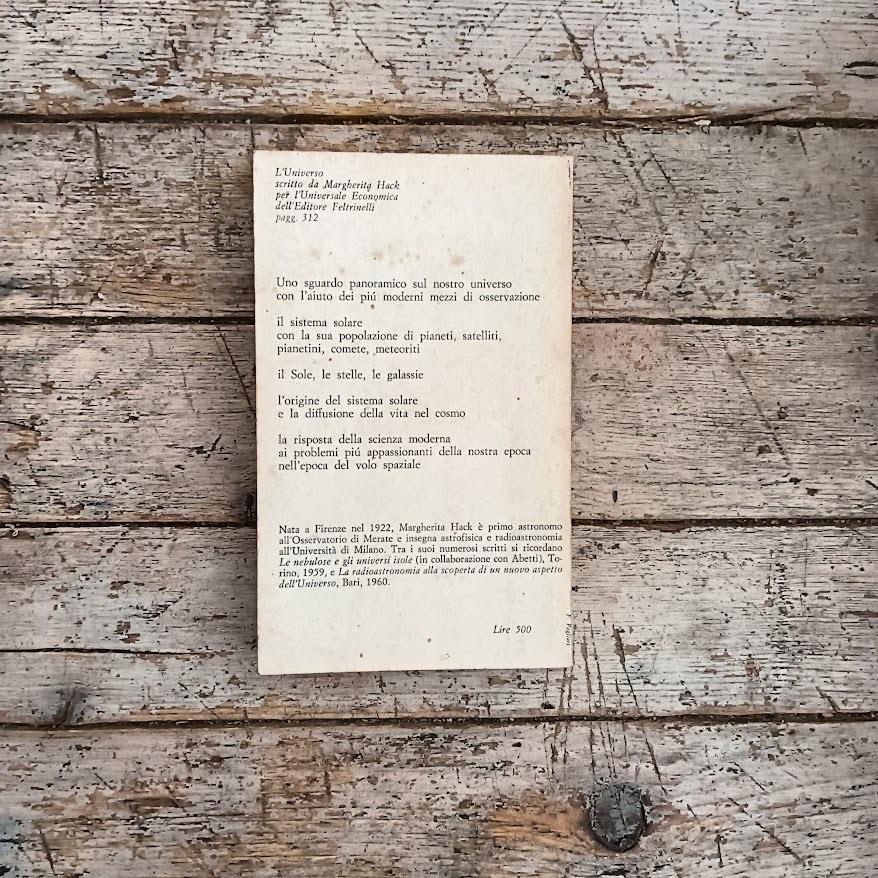 L'Universo
scritto da Margherita Hack
per l'Universale Economica
dell'Editore Feltrinelli
pagg. 312
Uno sguardo panoramico sul nostro universo
con l'aiuto dei piú moderni mezzi di osservazione
il sistema solare
con la sua popolazione di pianeti, satelliti,
pianetini, comete, meteoriti
il Sole, le stelle, le galassie
l'origine del sistema solare
e la diffusione della vita nel cosmo
la risposta della scienza moderna
ai problemi piú appassionanti della nostra epoca
nell'epoca del volo spaziale
Nata a Firenze nel 1922, Margherita Hack è primo astronomo
all'Osservatorio di Merate e insegna astrofisica e radioastronomia
all'Università di Milano. Tra i suoi numerosi scritti si ricordano
Le nebulose e gli universi isole (in collaborazione con Abetti), To-
rino, 1959, e La radioastronomia alla scoperta di un nuovo aspetto
dell'Universo, Bari, 1960.
Lire 500